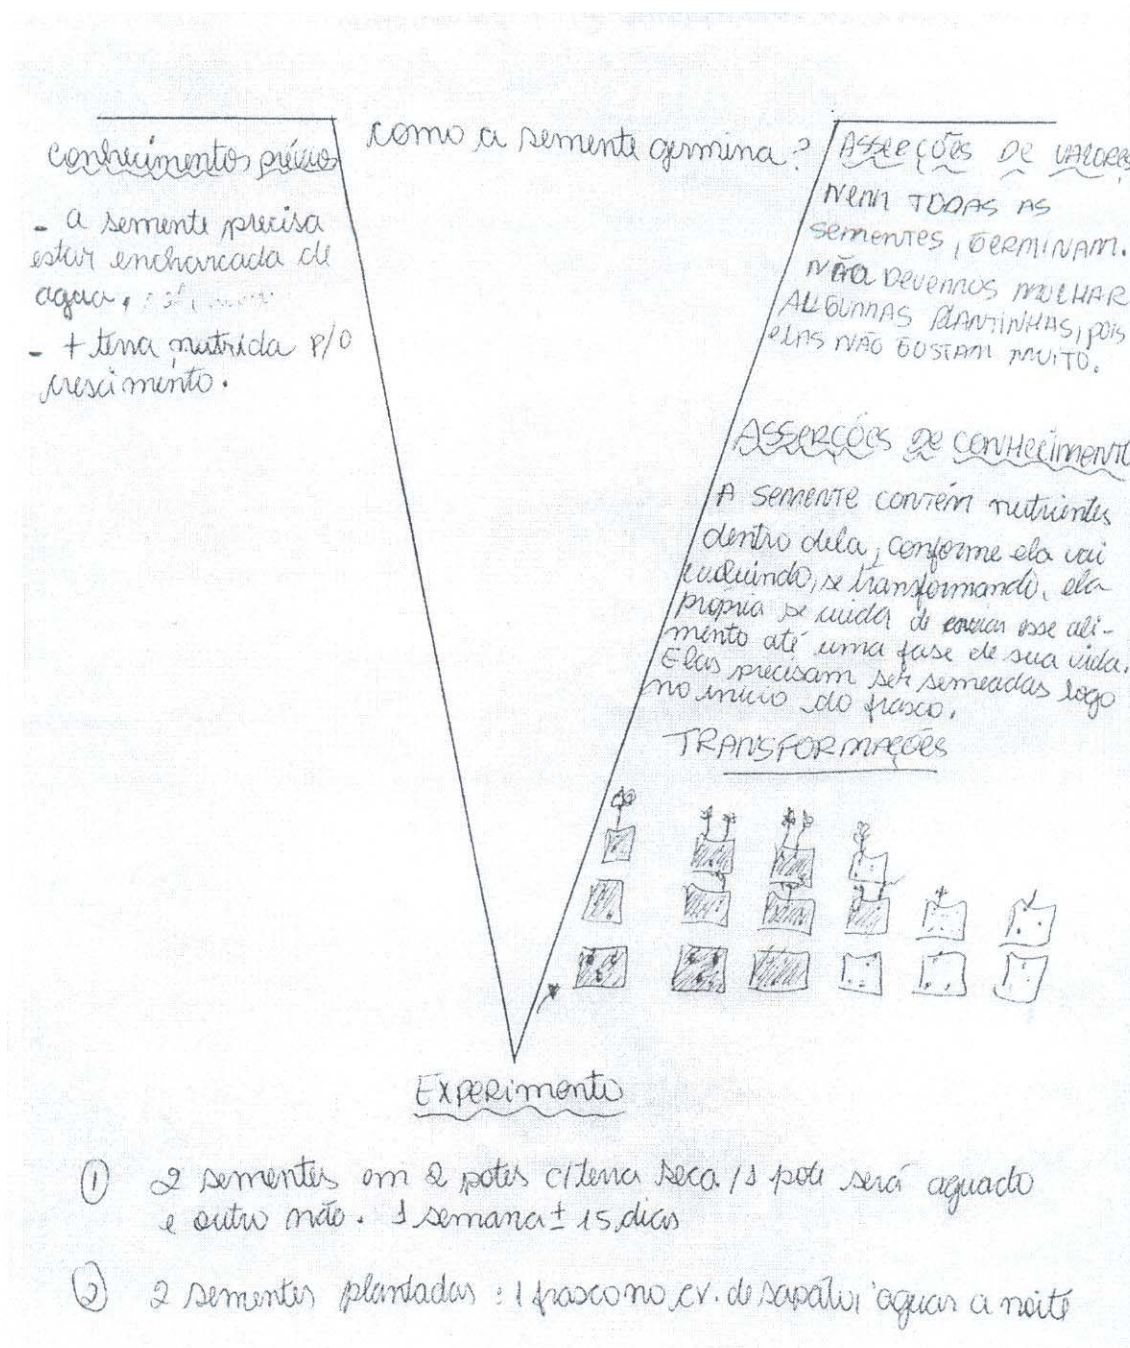 como a semente germina?
conhecimentos prévios
- a semente precisa
estar encharcada de
agua,
- + terra nutrida p/o
crescimento.
ASSERÇÕES DE VALORES
NEM TODAS AS
SEMENTES, GERMINAM.
NÃO DEVEMOS MOLHAR
ALGUMAS PLANTINHAS, POIS
ELAS NÃO GOSTAM MUITO.
ASSERÇÕES DE CONHECIMENTO
A SEMENTE CONTÉM nutrientes
dentro dela, conforme ela vai
evoluindo, se transformando, ela
própria se cuida de enviar esse ali-
mento até uma fase de sua vida.
Elas precisam ser semeadas logo
no início do frasco.
TRANSFORMAÇÕES
EXPERimento
① 2 sementes em 2 potes c/terra seca / 1 pote será aguado
e outro não. 1 semana ± 15 dias
② 2 sementes plantadas : 1 frasco no cv. de aguar a noite